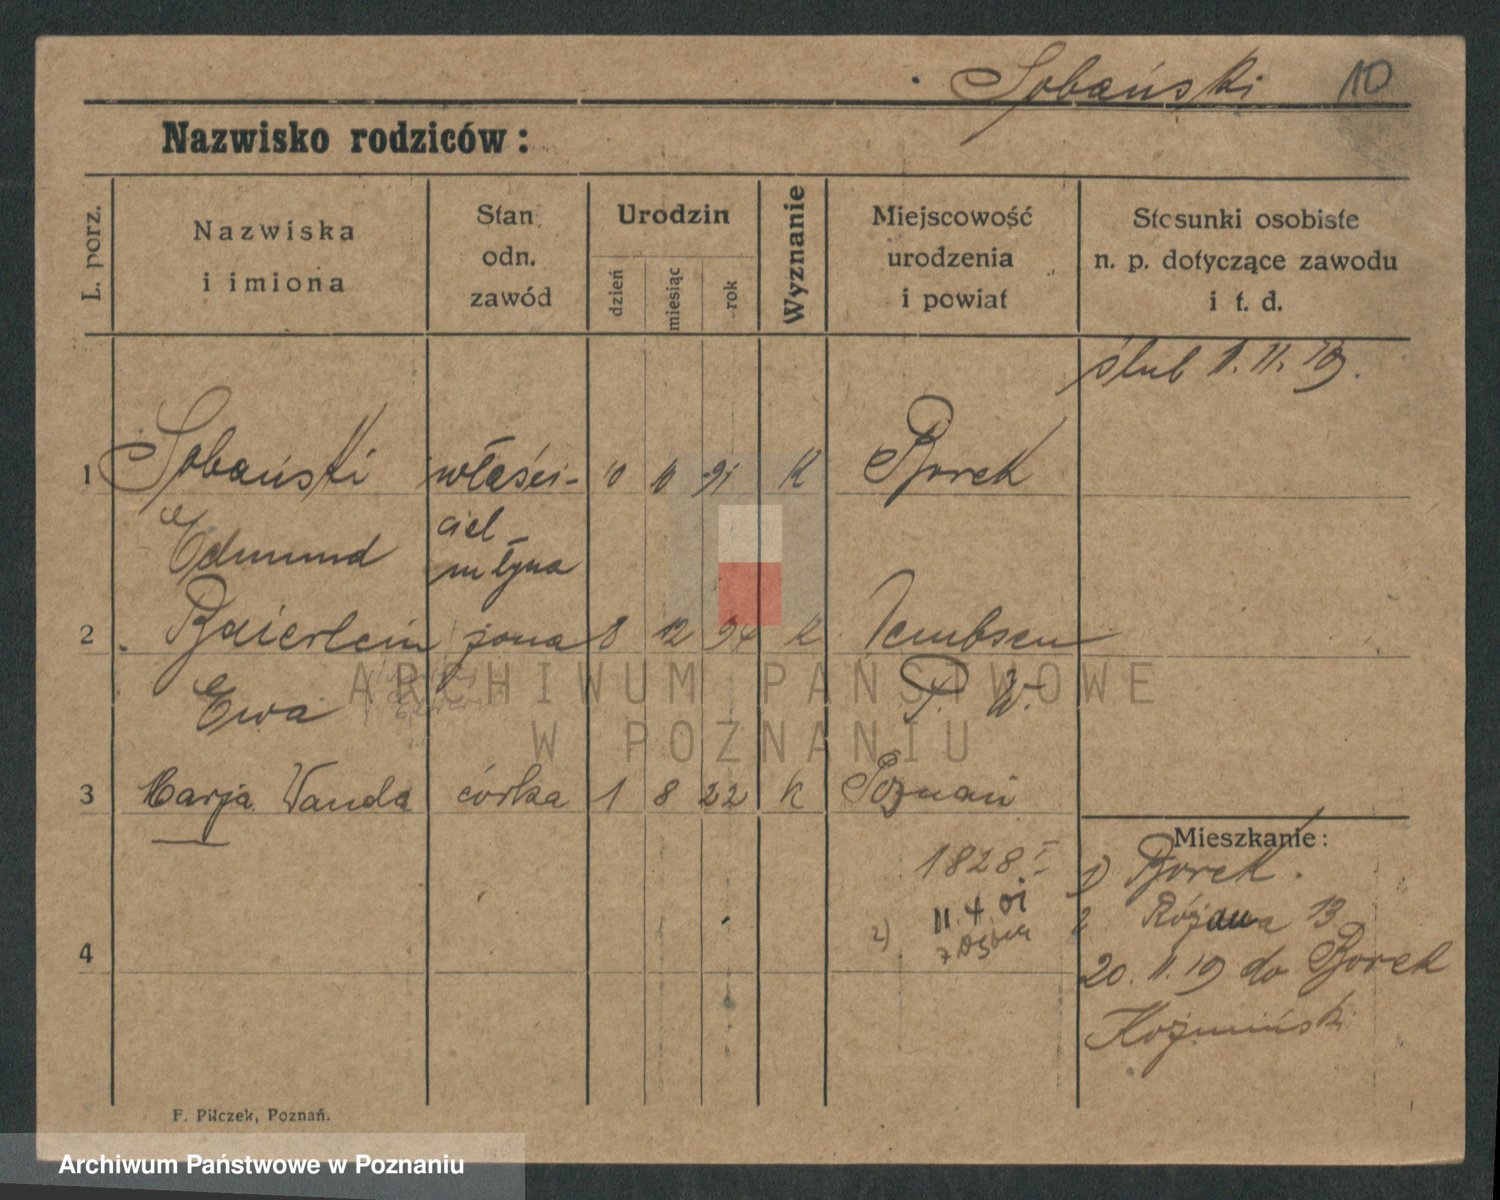 Sobański 10
Nazwisko rodziców:
L. porz.
Nazwiska
i imiona
Stan
odn.
zawód
Urodzin
dzień
miesiąc
rok
Wyznanie
Miejscowość
urodzenia
i powiat
Stosunki osobiste
n. p. dotyczące zawodu
i t. d.
ślub 1. 11. 19.
1 Sobański właści- 10 91 K Borek
Edmund ciel
młyna
2 Baierlein żona 8 12 94 K
Ewa P. W.
3 Marja Wanda córka 1 8 22 K Poznań
Mieszkanie:
1828 I 1) Borek.
2) 11. 4. 2 Różana 13
4 20. 11. 19 do Borek
Koźmiński
F. Pilczek, Poznań.
ARCHIWUM PAŃSTWOWE
W POZNANIU
Archiwum Państwowe w Poznaniu